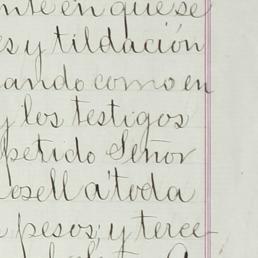 nte en que se
es y tildación
ando como en
y los testigos
petido Señor
osell a toda
pesos; y terce-